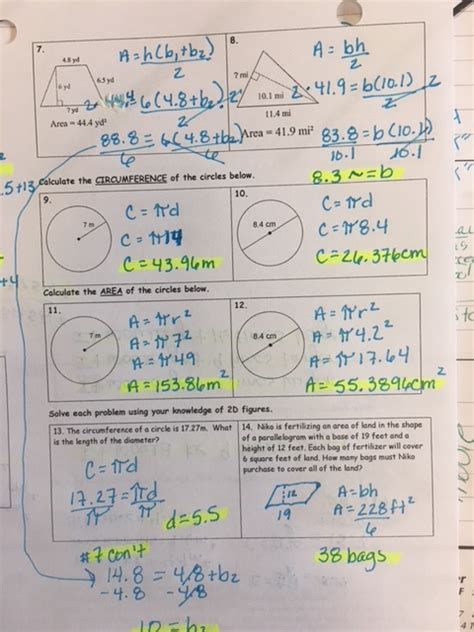 7.
4.8 yd
6 yd
6.5 yd
? yd
Area = 44.4 yd²
A = h(b₁+b₂)
2
2·44.4 = 6(4.8+b₂)·2
2
88.8 = 6(4.8+b₂)
6 6
8.
? mi
10.1 mi
11.4 mi
Area = 41.9 mi²
A = bh
2
2·41.9 = b(10.1)·2
2
83.8 = b(10.1)
10.1 10.1
8.3 ~= b
.5+13
Calculate the CIRCUMFERENCE of the circles below.
9.
7 m
C = πd
C = π14
C = 43.96m
10.
8.4 cm
C = πd
C = π8.4
C = 26.376cm
+4
Calculate the AREA of the circles below.
11.
7 m
A = πr²
A = π7²
A = π49
A = 153.86m²
12.
8.4 cm
A = πr²
A = π4.2²
A = π17.64
A = 55.3896cm²
Solve each problem using your knowledge of 2D figures.
13. The circumference of a circle is 17.27m. What
is the length of the diameter?
C = πd
17.27 = πd
π π
d = 5.5
14. Niko is fertilizing an area of land in the shape
of a parallelogram with a base of 19 feet and a
height of 12 feet. Each bag of fertilizer will cover
6 square feet of land. How many bags must Niko
purchase to cover all of the land?
12
19
A = bh
A = 228ft²
6
38 bags
#7 con't
14.8 = 4.8+b₂
-4.8 -4.8
10 = b₂